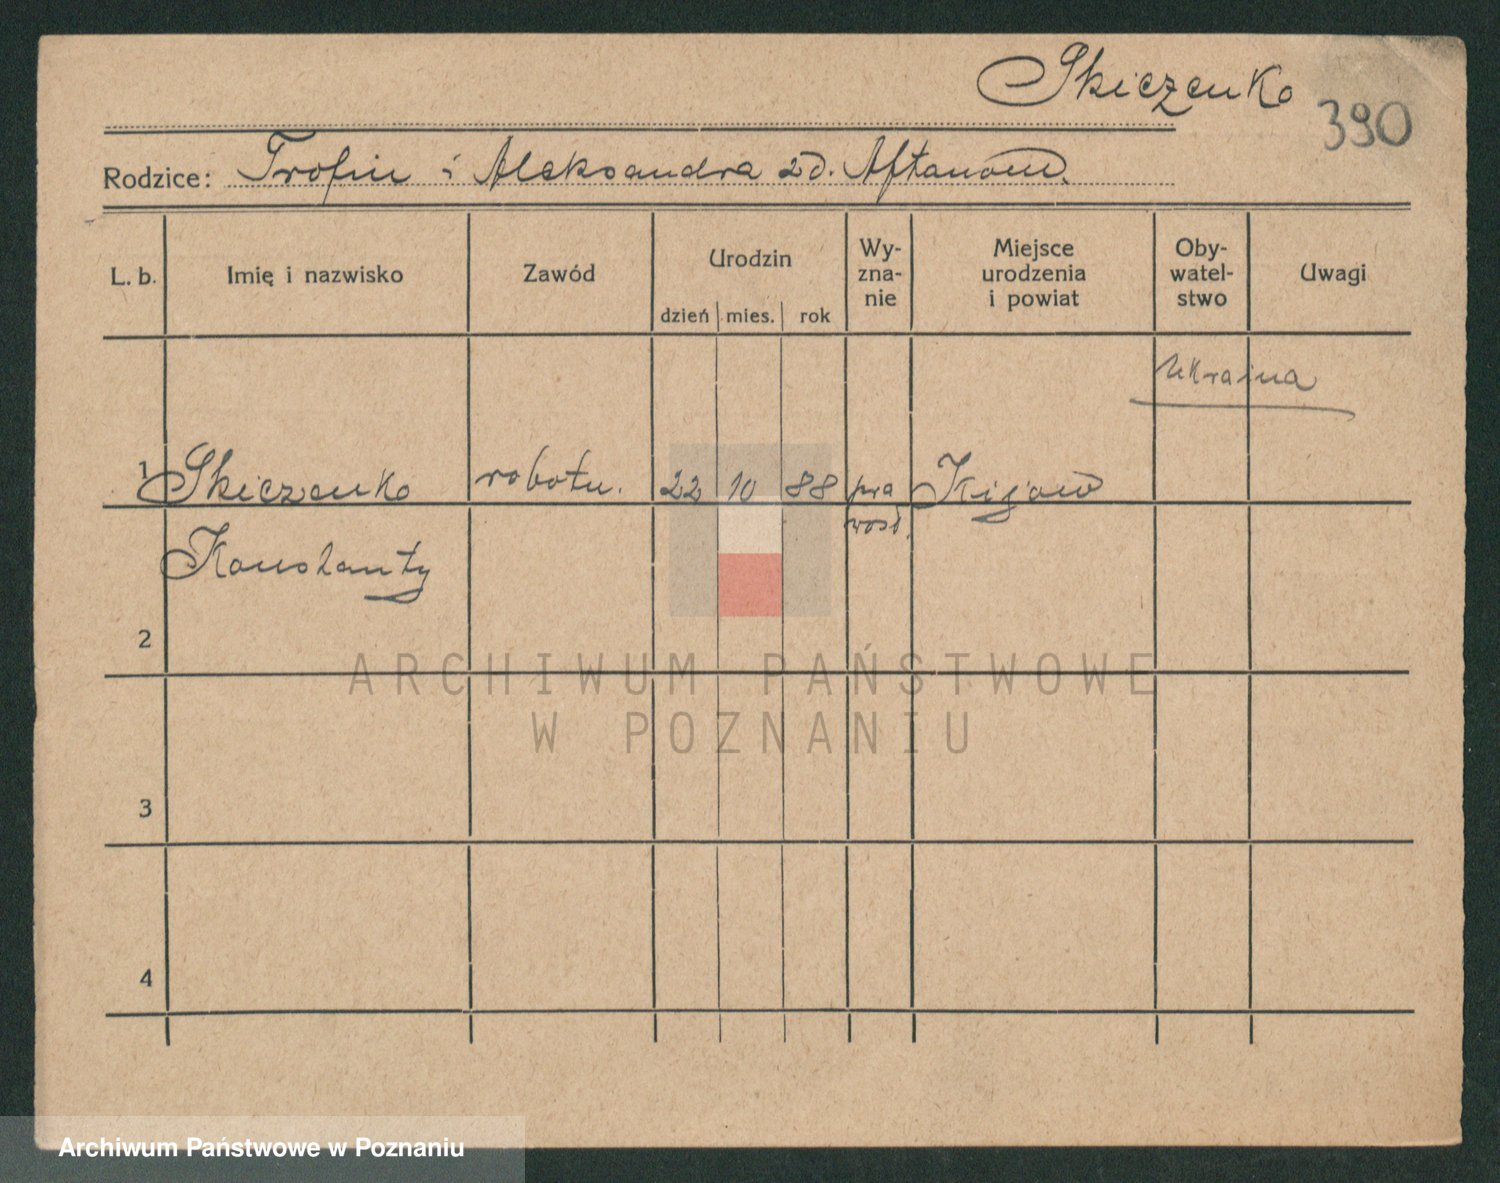 Skiczenko
390
Rodzice: Trofin i Aleksandra zd. Aftanów.
L. b. Imię i nazwisko Zawód Urodzin dzień mies. rok Wy-zna-nie Miejsce urodzenia i powiat Oby-watel-stwo Uwagi
Ukraina
1 Skiczenko robotn. 22 10 88 pra Kijów
wosł.
Konstanty
2
ARCHIWUM PAŃSTWOWE
W POZNANIU
3
4
Archiwum Państwowe w Poznaniu